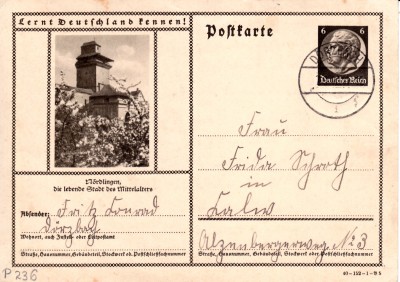 Lernt Deutschland kennen!
Postkarte
6 6
Deutsches Reich
Nördlingen,
die lebende Stadt des Mittelalters
Absender: Fritz Conrad
Dörzbach
Wohnort, auch Zustell- oder Leitpostamt
Straße, Hausnummer, Gebäudeteil, Stockwerk od. Postschließfachnummer
P 236
Frau
Frida Schroth
in
Calw
Alzenbergerweg No 3
Straße, Hausnummer, Gebäudeteil, Stockwerk oder Postschließfachnummer